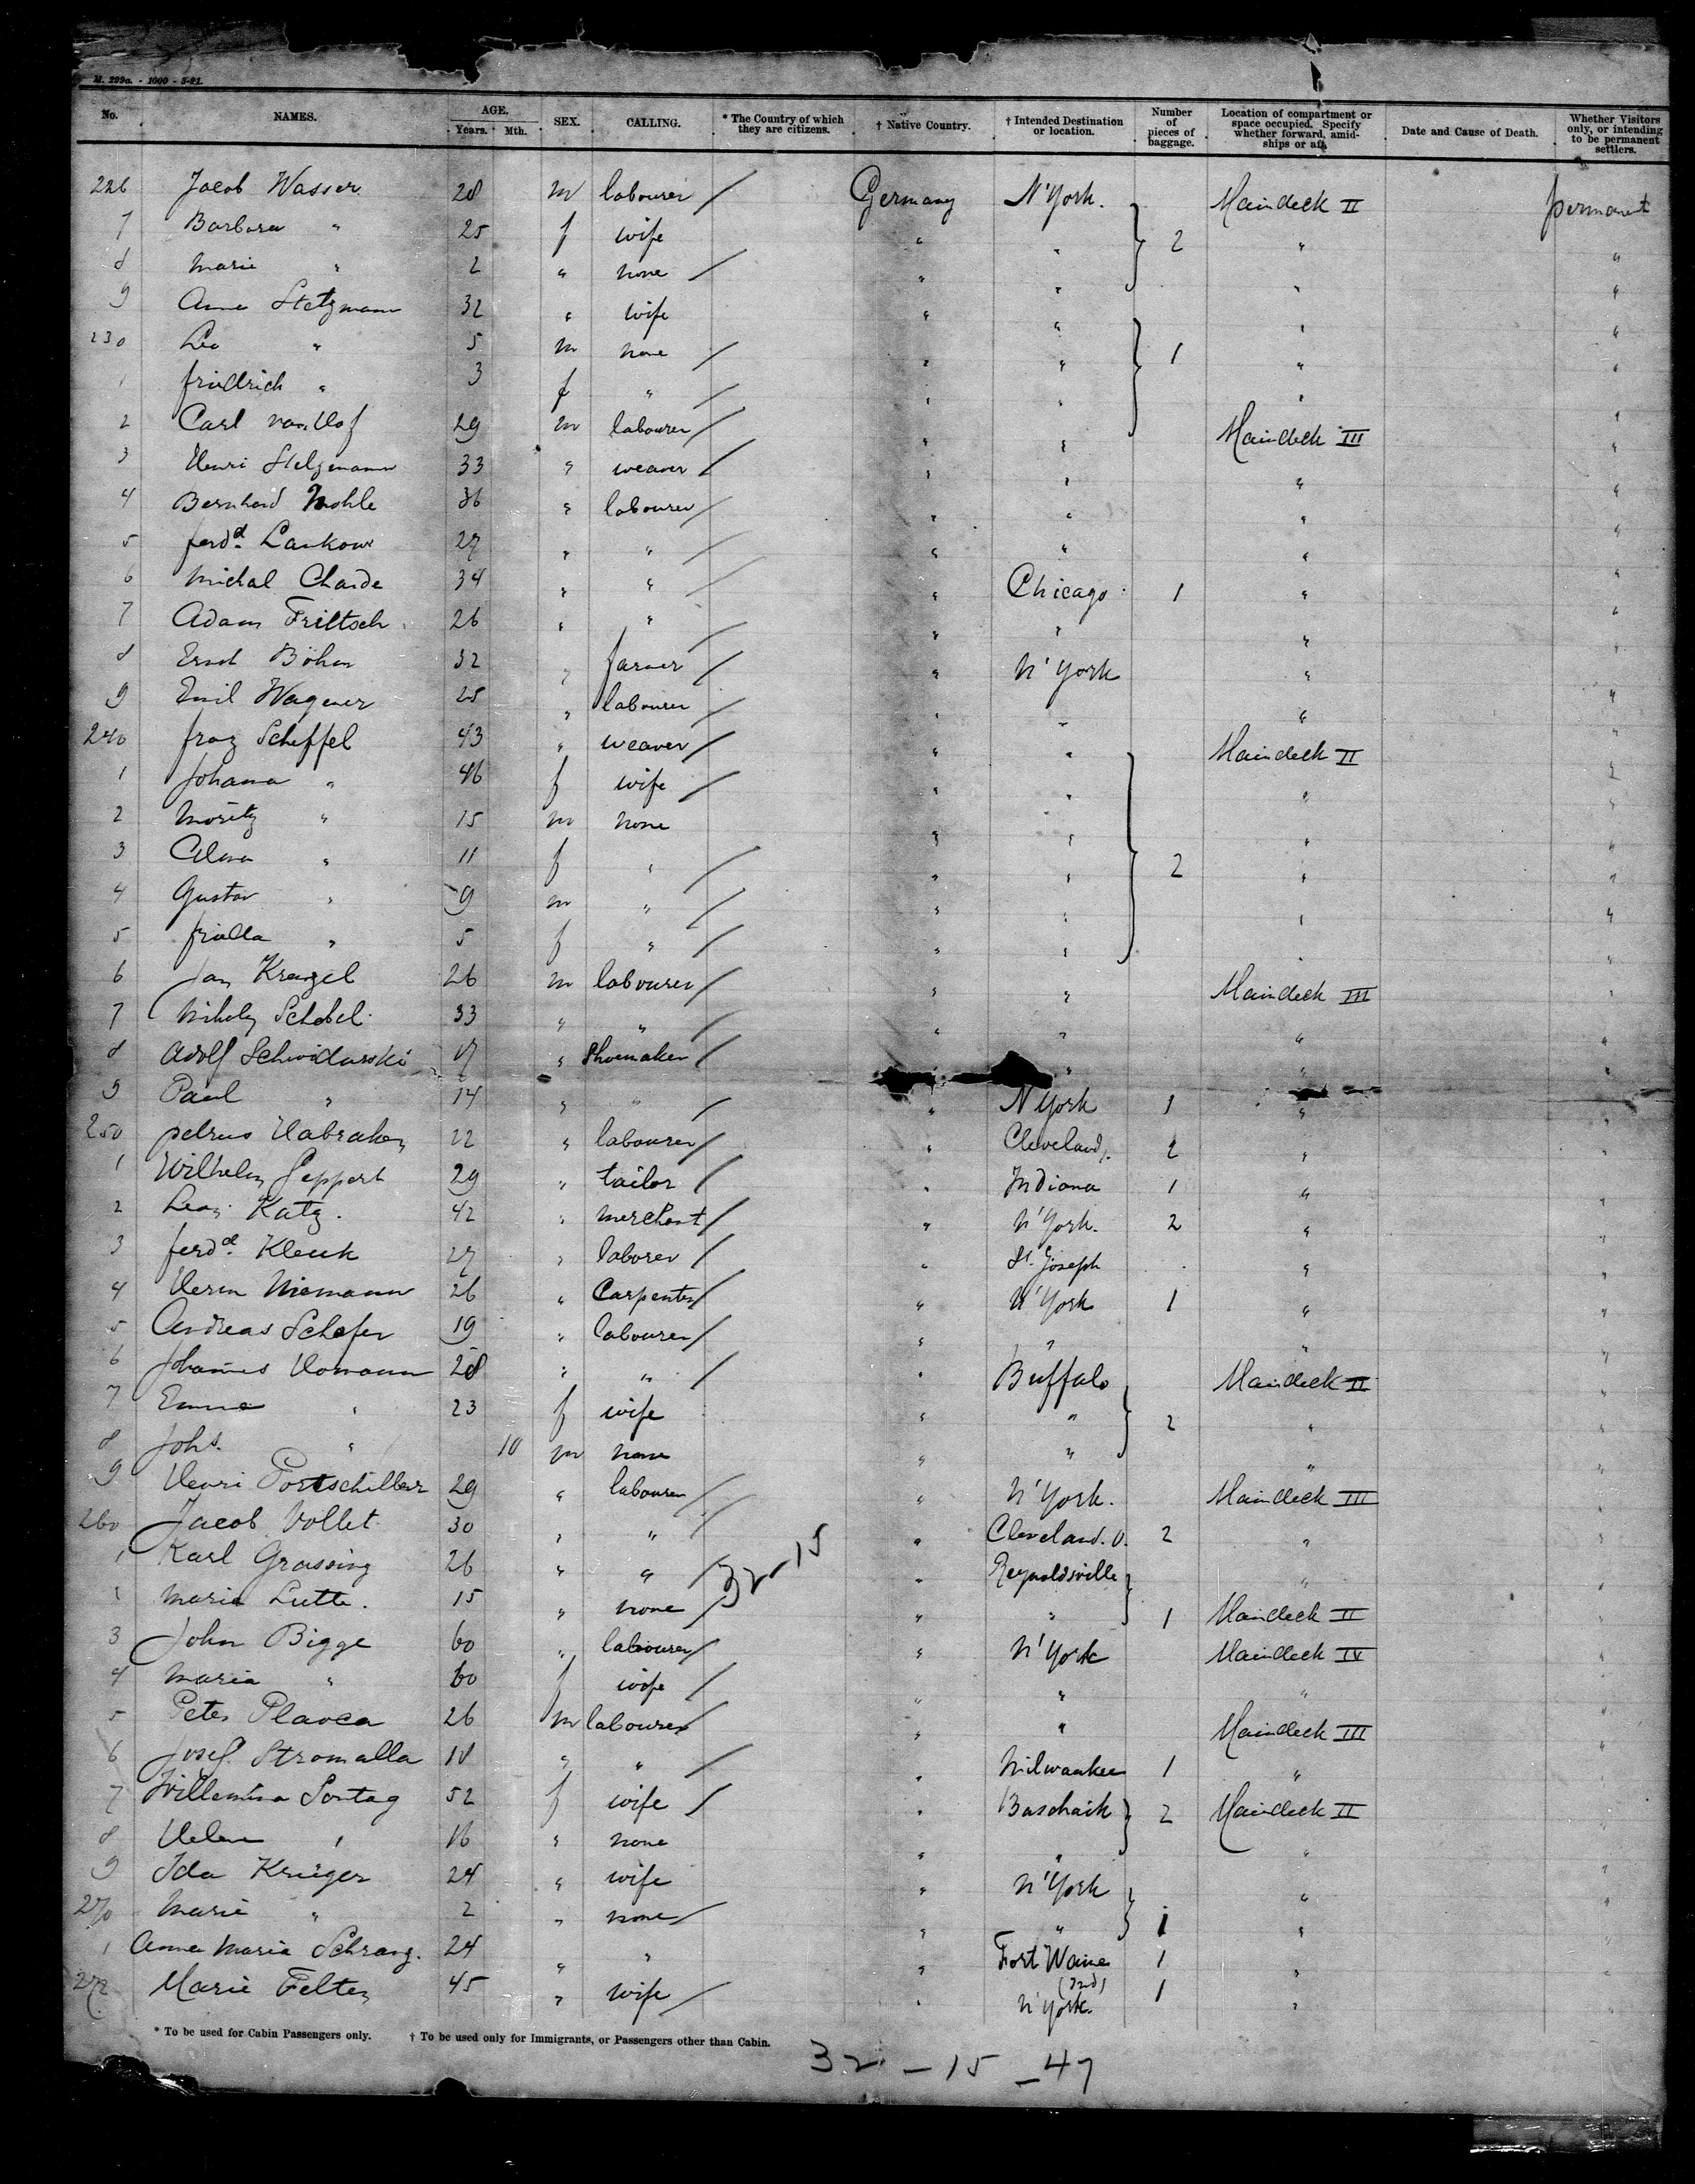 M. 299a. - 1000 - 3-91.
No. NAMES. AGE. Years. Mth. SEX. CALLING. * The Country of which they are citizens. † Native Country. † Intended Destination or location. Number of pieces of baggage. Location of compartment or space occupied. Specify whether forward, amidships or aft. Date and Cause of Death. Whether Visitors only, or intending to be permanent settlers.
226 Jacob Wasser 28 m labourer / Germany N'York. Maindeck II permanent
7 Barbara " 25 f wife " " 2 " "
8 Marie " 2 " none / " " " "
9 Anna Stelzmann 32 " wife " " " "
230 Leo " 5 m none / " " 1 " "
1 friedrich " 3 f " / " " " "
2 Carl 29 m labourer / " " Maindeck III "
3 Henri Stelzmann 33 " weaver / " " " "
4 Bernhard Mohle 36 " labourer / " " " "
5 ferd. Lankow 27 " " / " " " "
6 Michal Charde 34 " " / " Chicago 1 " "
7 Adam Frittsch 26 " " / " " " "
8 Ernst Böhm 32 " farmer / " N'York " "
9 Emil Wagener 25 " labourer / " " " "
240 franz Scheffel 43 " weaver / " " Maindeck II "
1 Johanna " 46 f wife / " " " "
2 Moritz " 15 m none " " " "
3 Alma " 11 f " / " " 2 " "
4 Gustav " 9 m " / " " " "
5 frieda " 5 f " / " " " "
6 Jan Krenzel 26 m labourer / " " Maindeck III "
7 Schobel 33 " " / " " " "
8 Adolf Schwidurski 17 " Shoemaker / " " "
9 Paul " 14 " " / " N York 1 " "
250 petrus Habraken 22 " labourer / " Cleveland. 2 " "
1 Wilhelm Geppert 29 " tailor / " Indiana 1 " "
2 Leon Katz. 42 " merchant / " N'York. 2 " "
3 ferd. Klenk 27 " laborer / " St. Joseph " "
4 Herm Niemann 26 " Carpenter / " N'York 1 " "
5 Andreas Schefer 19 " labourer / " " " "
6 Johannes Homann 28 " " / " Buffalo Maindeck II "
7 Emma " 23 f wife " " 2 " "
8 Johs. " 10 m none " " " "
9 Henri 29 " labourer / " N'York. Maindeck III "
260 Jacob Vollet 30 " " / " Cleveland. O. 2 " "
1 Karl Grassing 26 " " / 32-15 " Reynoldsville " "
Maria Lutte. 15 " none / " " 1 Maindeck II "
3 John Bigge 60 " labourer / " N'York Maindeck IV "
4 Maria " 60 f wife / " " " "
5 Peter Plavca 26 m labourer " " Maindeck III "
6 Josef. Stromalla 18 " " / " Milwaukee 1 " "
7 Willemina Sontag 52 f wife / " Baschaik 2 Maindeck II "
8 Helene " 16 " none " " " "
9 Ida Krüger 24 " wife " N'York " "
270 Marie " 2 " none / " " 1 " "
1 Anna Maria Schrang. 24 " " " Fort Waine (Ind) 1 " "
272 Marie Felten 45 " wife / " N'York. 1 " "
* To be used for Cabin Passengers only. † To be used only for Immigrants, or Passengers other than Cabin.
32 - 15 - 47